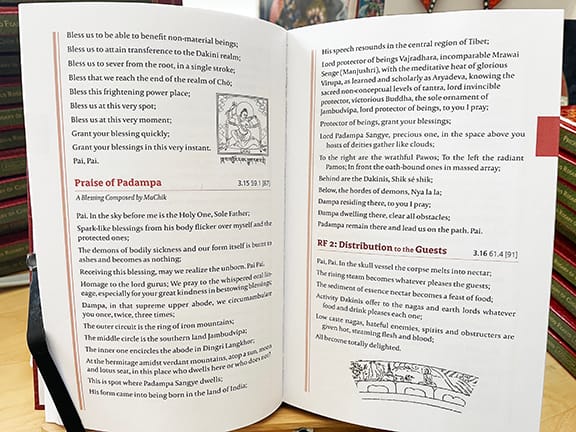 Bless us to be able to benefit non-material beings;
Bless us to attain transference to the Dakini realm;
Bless us to sever from the root, in a single stroke;
Bless that we reach the end of the realm of Chö;
Bless this frightening power place;
Bless us at this very spot;
Bless us at this very moment;
Grant your blessing quickly;
Grant your blessings in this very instant.
Pai, Pai.
Praise of Padampa 3.15 59.1 [87]
A Blessing Composed by MaChik
Pai. In the sky before me is the Holy One, Sole Father;
Spark-like blessings from his body flicker over myself and the
protected ones;
The demons of bodily sickness and our form itself is burnt to
ashes and becomes as nothing;
Receiving this blessing, may we realize the unborn. Pai Pai.
Homage to the lord gurus; We pray to the whispered oral lin-
eage, especially for your great kindness in bestowing blessings;
Dampa, in that supreme upper abode, we circumambulate
you once, twice, three times;
The outer circuit is the ring of iron mountains;
The middle circle is the southern land Jambudvipa;
The inner one encircles the abode in Dingri Langkhor;
At the hermitage amidst verdant mountains, atop a sun, moon
and lotus seat, in this place who dwells here or who does not?
This is spot where Padampa Sangye dwells;
His form came into being born in the land of India;
His speech resounds in the central region of Tibet;
Lord protector of beings Vajradhara, incomparable Mrawai
Senge (Manjushri), with the meditative heat of glorious
Virupa, as learned and scholarly as Aryadeva, knowing the
sacred non-conceptual levels of tantra, lord invincible
protector, victorious Buddha, the sole ornament of
Jambudvipa, lord protector of beings, to you I pray;
Protector of beings, grant your blessings;
Lord Padampa Sangye, precious one, in the space above you
hosts of deities gather like clouds;
To the right are the wrathful Pawos; To the left the radiant
Pamos; In front the oath-bound ones in massed array;
Behind are the Dakinis, Shik sé shik;
Below, the hordes of demons, Nya la la;
Dampa residing there, to you I pray;
Dampa dwelling there, clear all obstacles;
Padampa remain there and lead us on the path. Pai.
RF 2: Distribution to the Guests 3.16 61.4 [91]
Pai, Pai. In the skull vessel the corpse melts into nectar;
The rising steam becomes whatever pleases the guests;
The sediment of essence nectar becomes a feast of food;
Activity Dakinis offer to the nagas and earth lords whatever
food and drink pleases each one;
Low caste nagas, hateful enemies, spirits and obstructers are
given hot, steaming flesh and blood;
All become totally delighted.